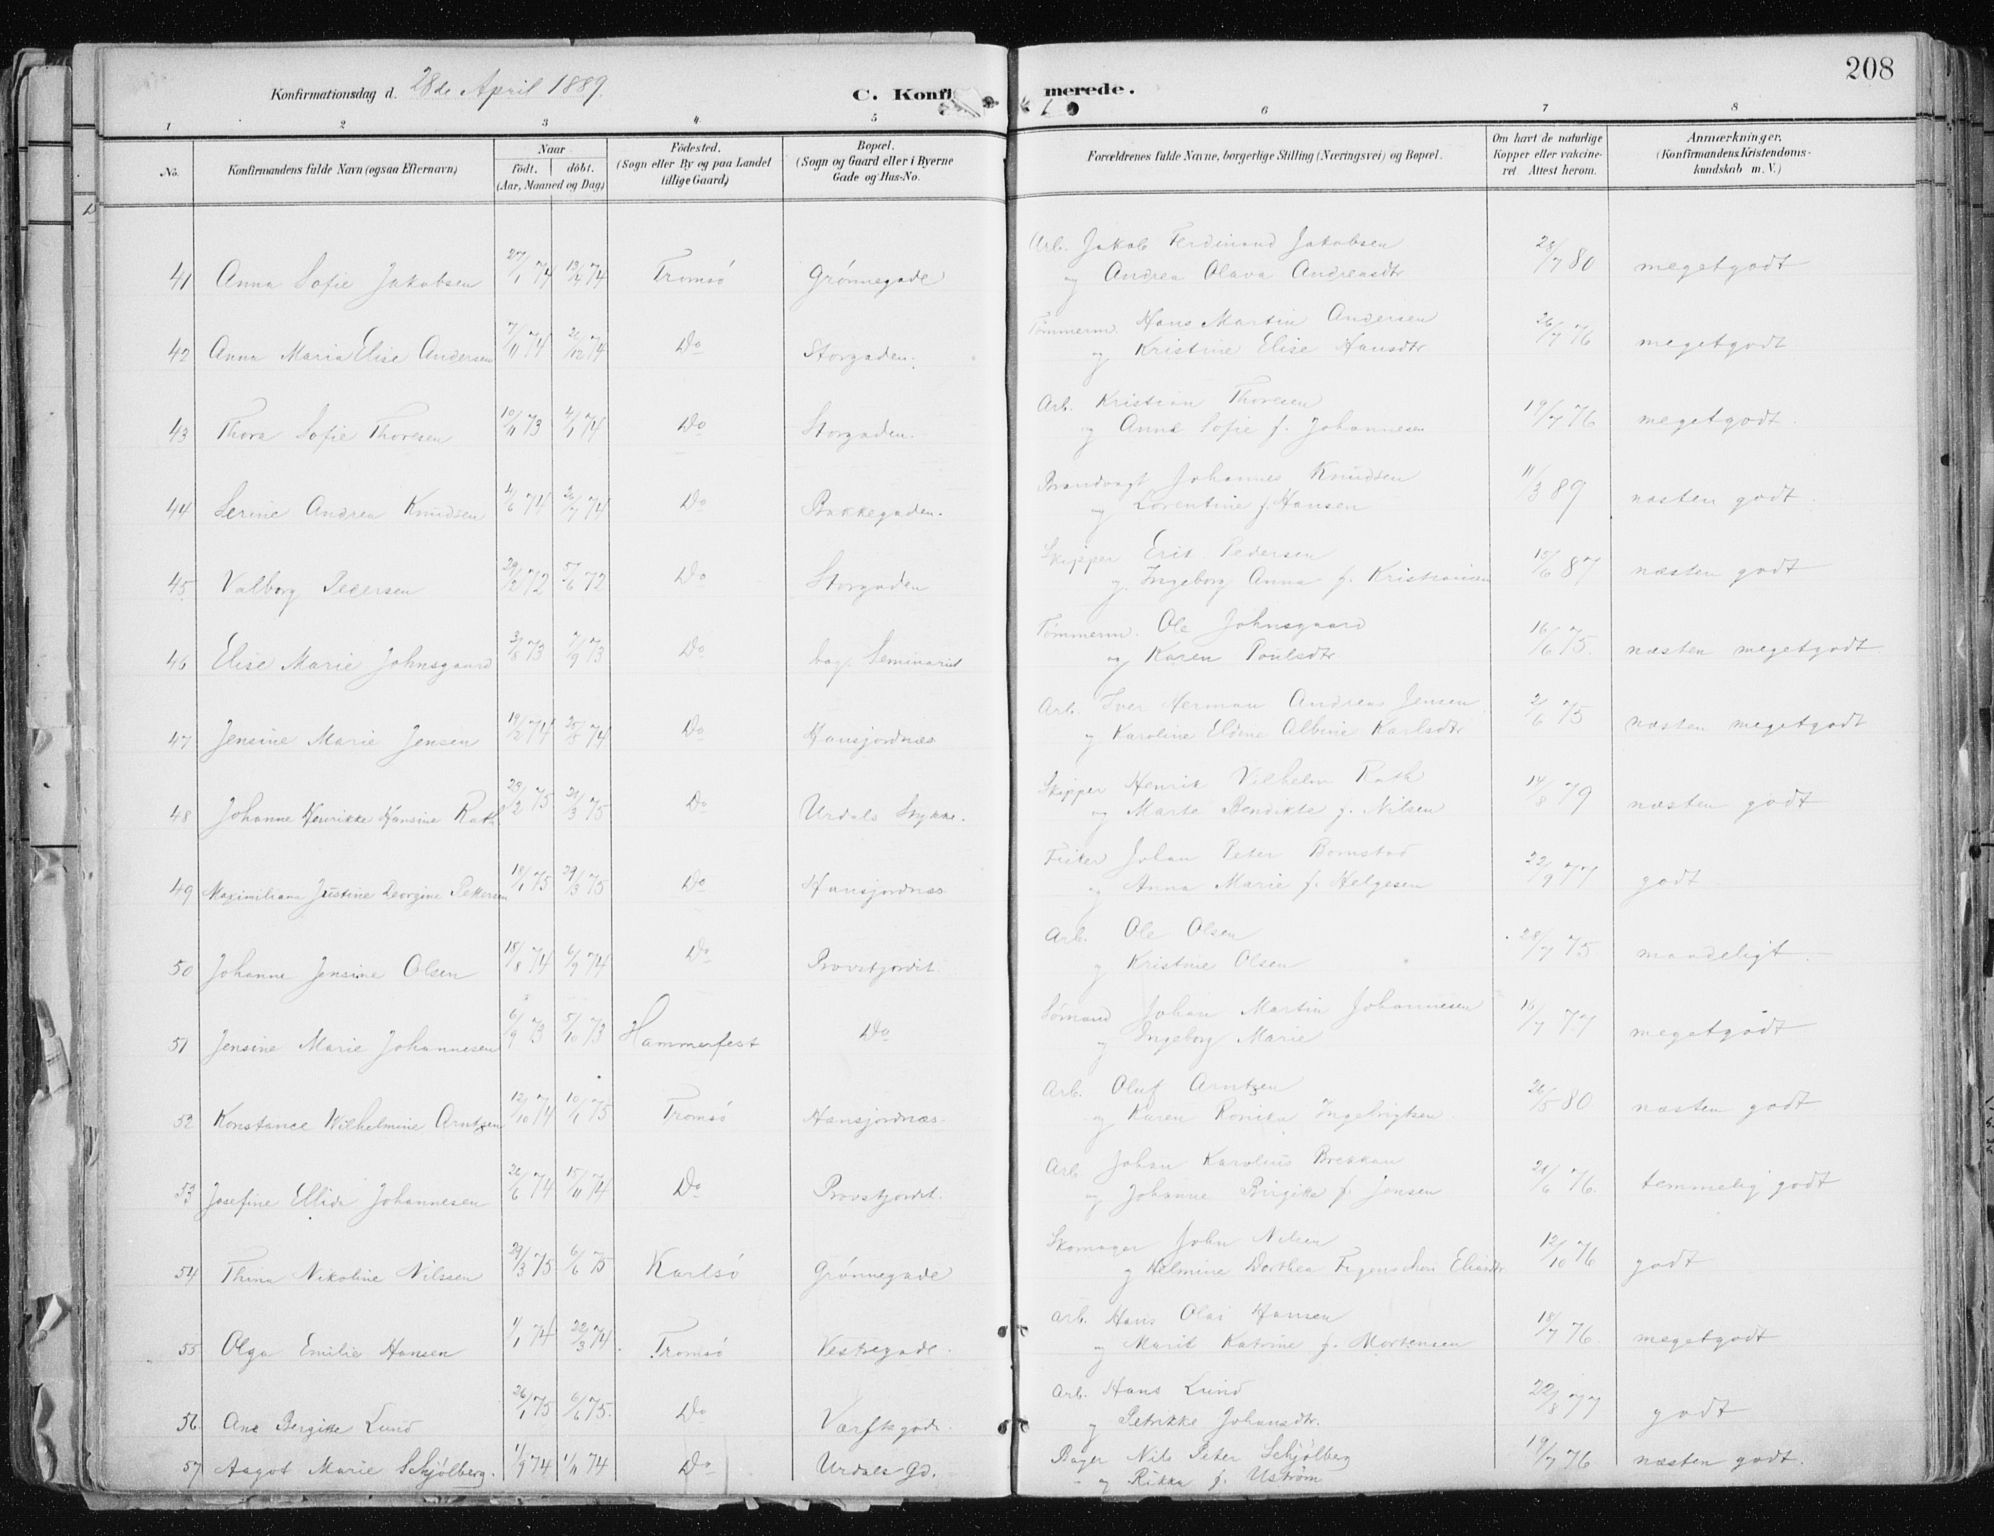 208
Konfirmationsdag d. 28de April 1889.
C. Konfirmerede.
1 2 3 4 5 6 7 8
No. Konfirmandens fulde Navn (ogsaa Efternavn) Naar födt. döbt. (Aar, Maaned og Dag) Födested. (Sogn eller By og paa Landet tillige Gaard) Bopæl. (Sogn og Gaard eller i Byerne Gade og Hus-No. Forældrenes fulde Navne, borgerlige Stilling (Næringsvei) og Bopæl. Om havt de naturlige Kopper eller vakcineret Attest herom. Anmærkninger. (Konfirmandens Kristendomskundskab m. V.)
41 Anna Sofie Jakobsen 27/1 74 Tromsö Grönnegade Arb. Jakob Ferdinand Jakobsen 80 megetgodt
og Andrea Olava Andreasdtr
42 Anna Maria Elise Andersen 7/11 74 Do Storgaden. Tömmerm. Hans Martin Andersen 26/7 76 megetgodt
og Kristine Elise Hansdtr
43 Thora Sofie Thoresen 10/11 73 4/1 74 Do Storgaden. Arb. Kristian Thoresen 19/7 76 megetgodt.
og Anne Sofie f. Johannesen
44 Serine Andrea Knudsen 4/6 74 26/7 74 Do Bakkegaden. Brandvagt Johannes Knudsen 11/3 89 næsten godt.
og Lorentine f. Hansen
45 Valborg Pedersen 72 5/6 72 Do Storgaden Skipper Erik Pedersen 10/6 87 næsten godt
og Ingeborg Anna f. Kristiansen
46 Elise Marie Johnsgaard 3/8 73 7/9 73 Do bag Seminariet Tömmerm. Ole Johnsgaard 16/6 75. næsten megetgodt.
og Karen Poulsdtr
47 Jensine Marie Jensen 19/2 74 25/8 74 Do Hansjordnæs Arb. Iver Herman Andreas Jensen 75 næsten megetgodt
og Karoline Eldine Albine Karlsdtr
48 Johanne Henrikke Hansine Rath 75 21/3 75 Do Urdals Stykke. Skipper Henrik Vilhelm Rath 14/8 79 næsten godt
og Marte Bendikte f. Nilsen
49 Maximiliana Justine Georgine Pettersen 18/1 75 29/3 75 Do Hansjordnæs Johan Peter Bomstad 22/9 77 godt
og Anna Marie f. Helgesen
50 Johanne Jensine Olsen 18/8 74 6/9 74 Do Provstjordet. Arb. Ole Olsen 28/7 75 maadeligt.
og Kristine Olsen
51 Jensine Marie Johannesen 6/9 73 5/10 73 Hammerfest Do Sömand Johan Martin Johannesen 16/7 77 megetgodt
og Ingeborg Marie
52 Konstance Wilhelmine Arntzen 12/10 74 10/1 75 Tromsö Hansjordnæs. Arb. Oluf Arntzen 26/5 80 næsten godt
og Karen Ingebrigtsen
53 Josefine Ellida Johannesen 26/6 74 15/11 74 Do Provstjordet. Arb. Johan Karolius Brekkan 21/6 76. temmelig godt
og Johanne Birgitte f. Jensen
54 Thina Nikoline Nilssen 29/3 75 6/6 75 Karlsö Grönnegade Skomager John Nilsen 12/10 76 godt
og Helmine Dorthea Figenschou
55 Olga Emilie Hansen 1/1 74 22/3 74 Tromsö Vestregade. Arb. Hans Olai Hansen 18/7 76. megetgodt
og Marit Katrine f. Mortensen
56 Ane Bergitte Lund 26/1 75 6/6 75. Do Værftsgade. Arb. Hans Lund 22/8 77 godt
og Petrikke Johansdtr.
57 Aagot Marie Schjölberg. 1/9 74 1/11 74 Do Urdals Gd. Bager Nils Peter Schjölberg 19/7 76 næsten godt.
og Rikka f. Uström